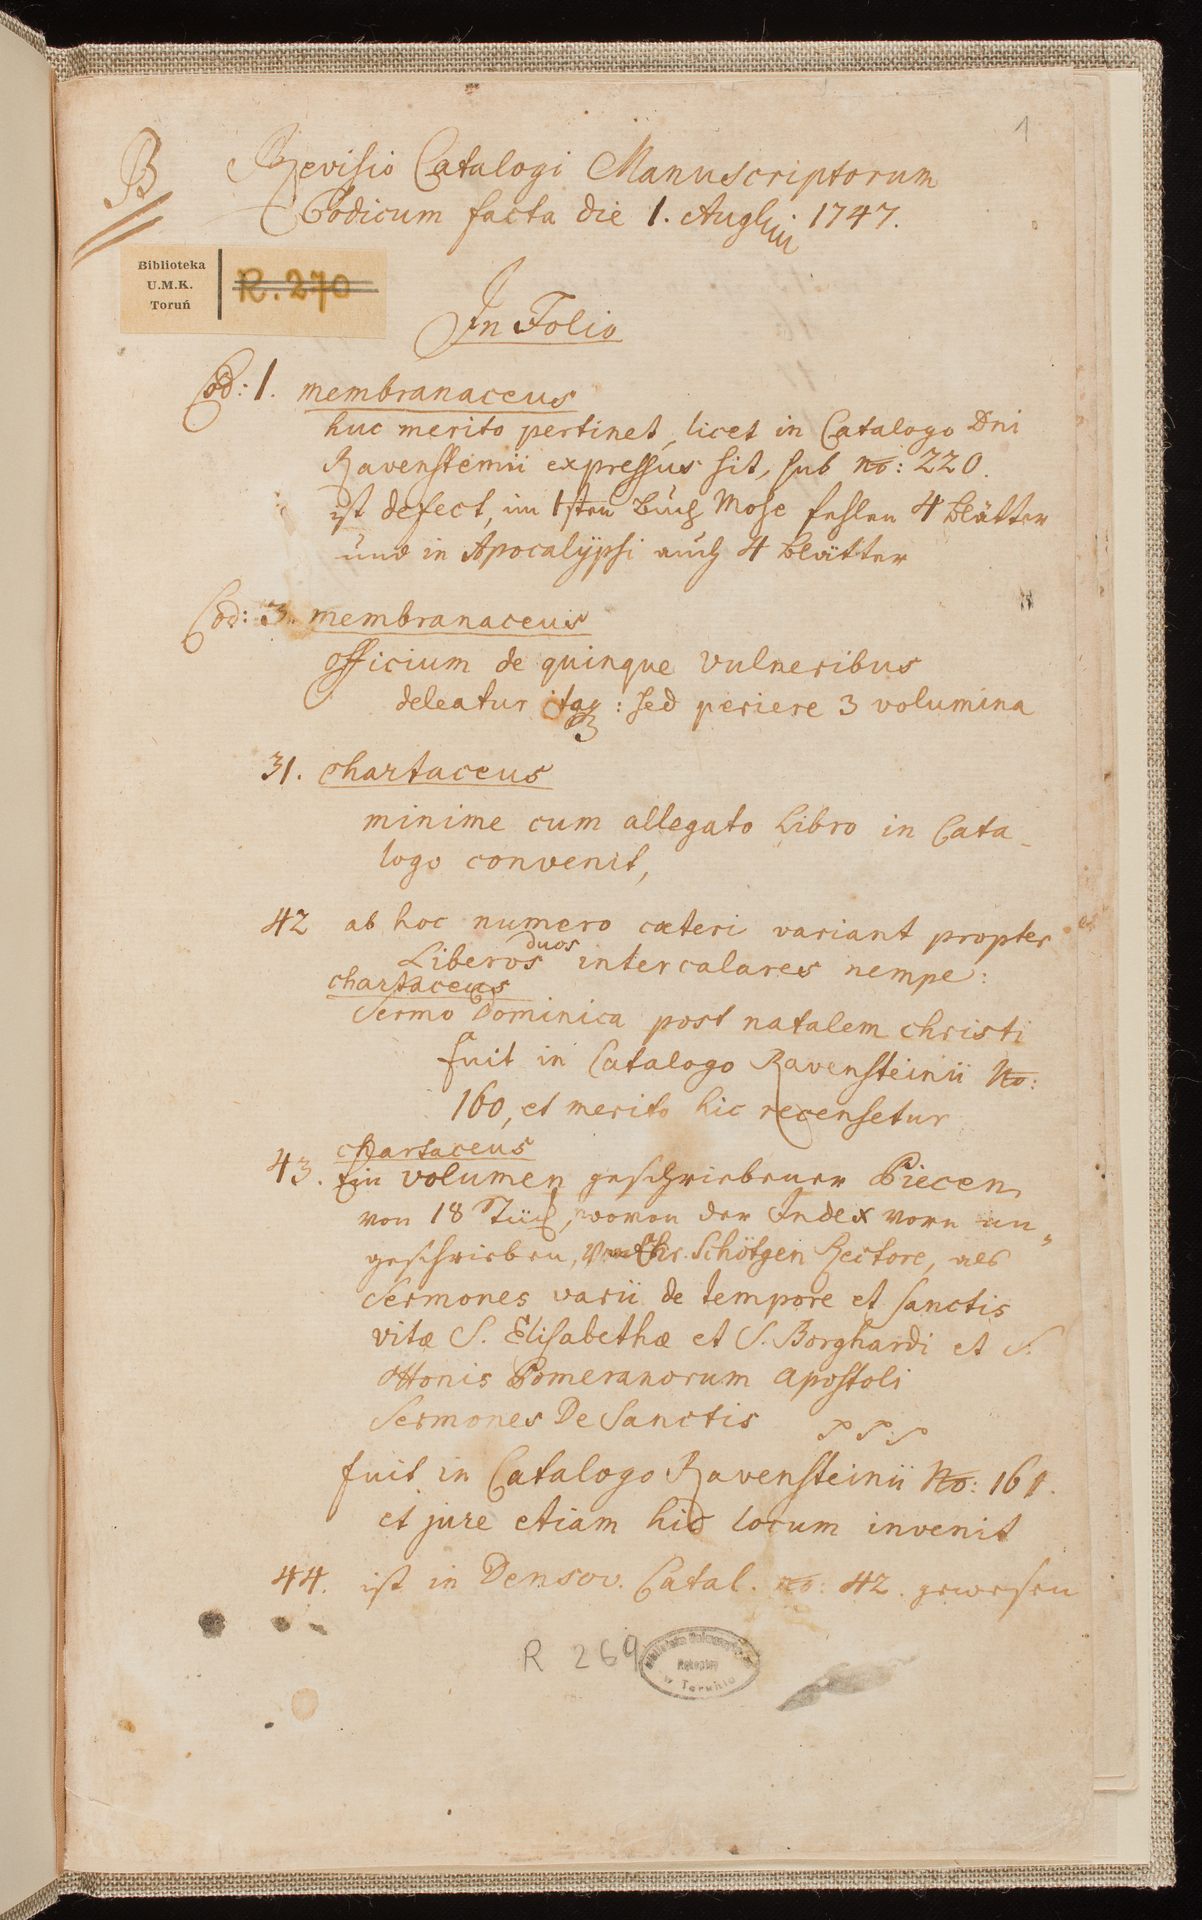 1
B
Revisio Catalogi Manuscriptorum
Codicum facta die 1. Augusti 1747.
Biblioteka
U.M.K.
Toruń
R. 270
In Folio
Cod: 1. membranaceus
huc merito pertinet, licet in Catalogo Dni
Ravensteinii expressus sit, sub no: 220.
ist defect, im 1sten Buch Mose fehlen 4 Blätter
und in Apocalÿpsi auch 4 Blätter
Cod: 3. membranaceus
officium de quinque vulneribus
deleatur itaq3 : sed periere 3 volumina
31. chartaceus
minime cum allegato Libro in Cata-
logo convenit,
42 ab hoc numero cæteri variant propter
Liberos duos intercalares nempe:
chartaceus
Sermo Dominica post natalem Christi
fuit in Catalogo Ravensteinii No:
160, et merito hic recensetur
chartaceus
43. Ein volumen geschriebener Piecen
von 18 Stück, wovon der Index vorn an„
geschrieben, Chr. Schötgen Rectore, als
Sermones varii de tempore et sanctis
vitæ S. Elisabethæ et S. Borghardi et S.
Ottonis Pomeranorum Apostoli
Sermones De Sanctis
fuit in Catalogo Ravensteinii No: 161.
et jure etiam hic locum invenit
44. ist in Densov. Catal. no: 42. gewesen
R 269
w Toruniu